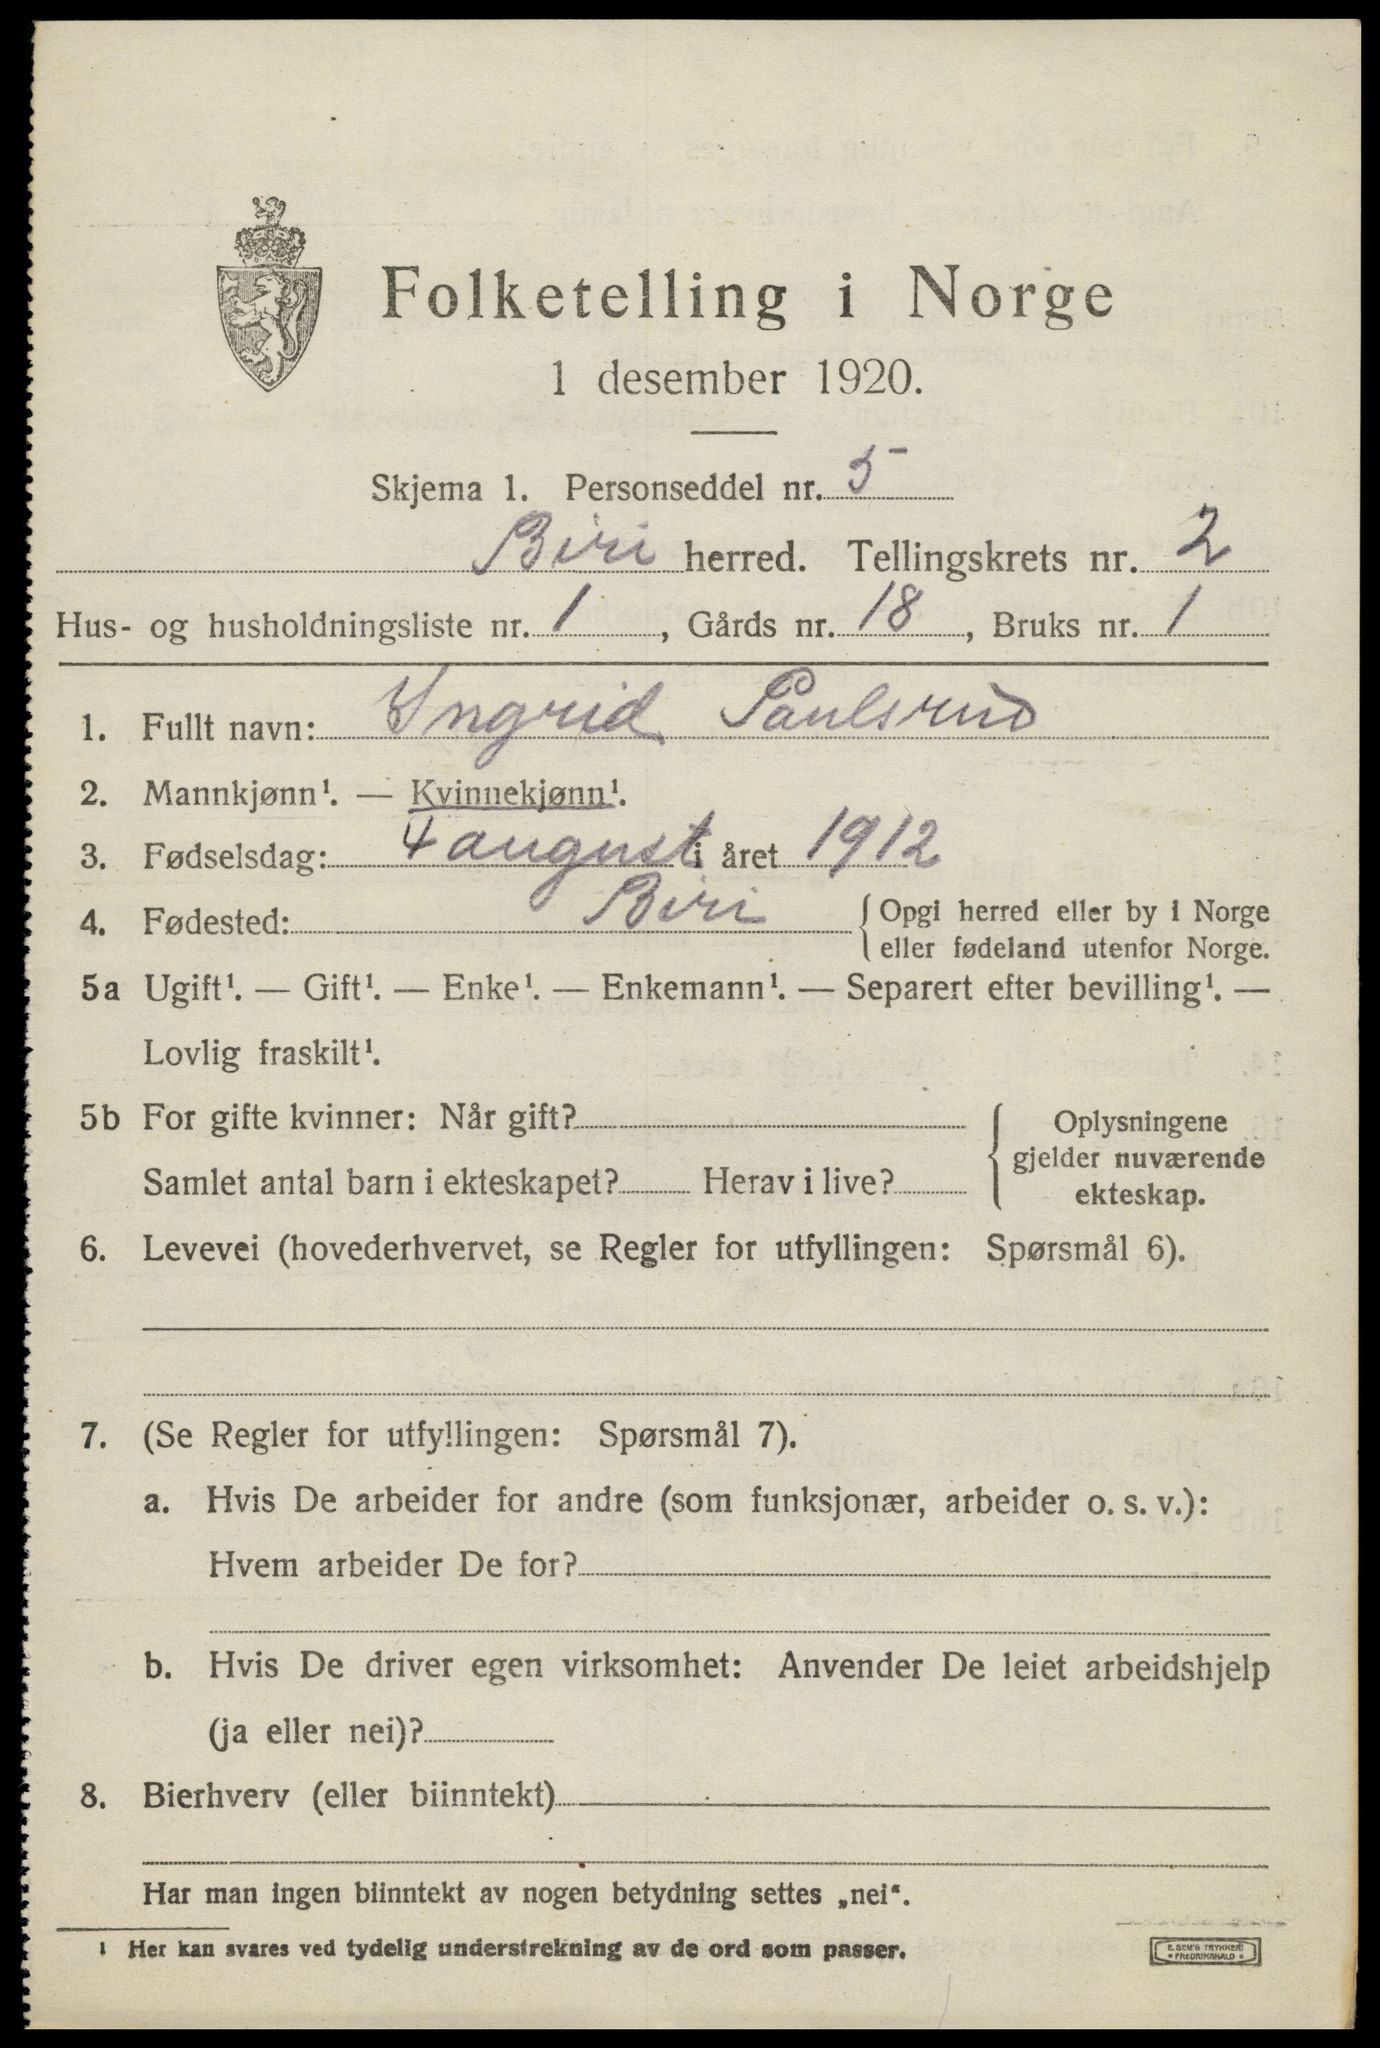 Folketelling i Norge
1 desember 1920.
Skjema 1. Personseddel nr. 5
Biri herred. Tellingskrets nr. 2
Hus- og husholdningsliste nr. 1, Gårds nr. 18, Bruks nr. 1
1. Fullt navn: Ingrid Paulsrud
2. Mannkjønn¹. — Kvinnekjønn¹.
3. Fødselsdag: 4 august i året 1912
4. Fødested: Biri { Opgi herred eller by i Norge
eller fødeland utenfor Norge.
5a Ugift¹. — Gift¹. — Enke¹. — Enkemann¹. — Separert efter bevilling¹. —
Lovlig fraskilt¹.
5b For gifte kvinner: Når gift?
Samlet antal barn i ekteskapet? Herav i live?
Oplysningene
gjelder nuværende
ekteskap.
6. Levevei (hovederhvervet, se Regler for utfyllingen: Spørsmål 6).
7. (Se Regler for utfyllingen: Spørsmål 7).
a. Hvis De arbeider for andre (som funksjonær, arbeider o. s. v.):
Hvem arbeider De for?
b. Hvis De driver egen virksomhet: Anvender De leiet arbeidshjelp
(ja eller nei)?
8. Bierhverv (eller biinntekt)
Har man ingen biinntekt av nogen betydning settes „nei“.
¹ Her kan svares ved tydelig understrekning av de ord som passer.
E. SEM'S TRYKKERI
• FREDRIKSHALD •